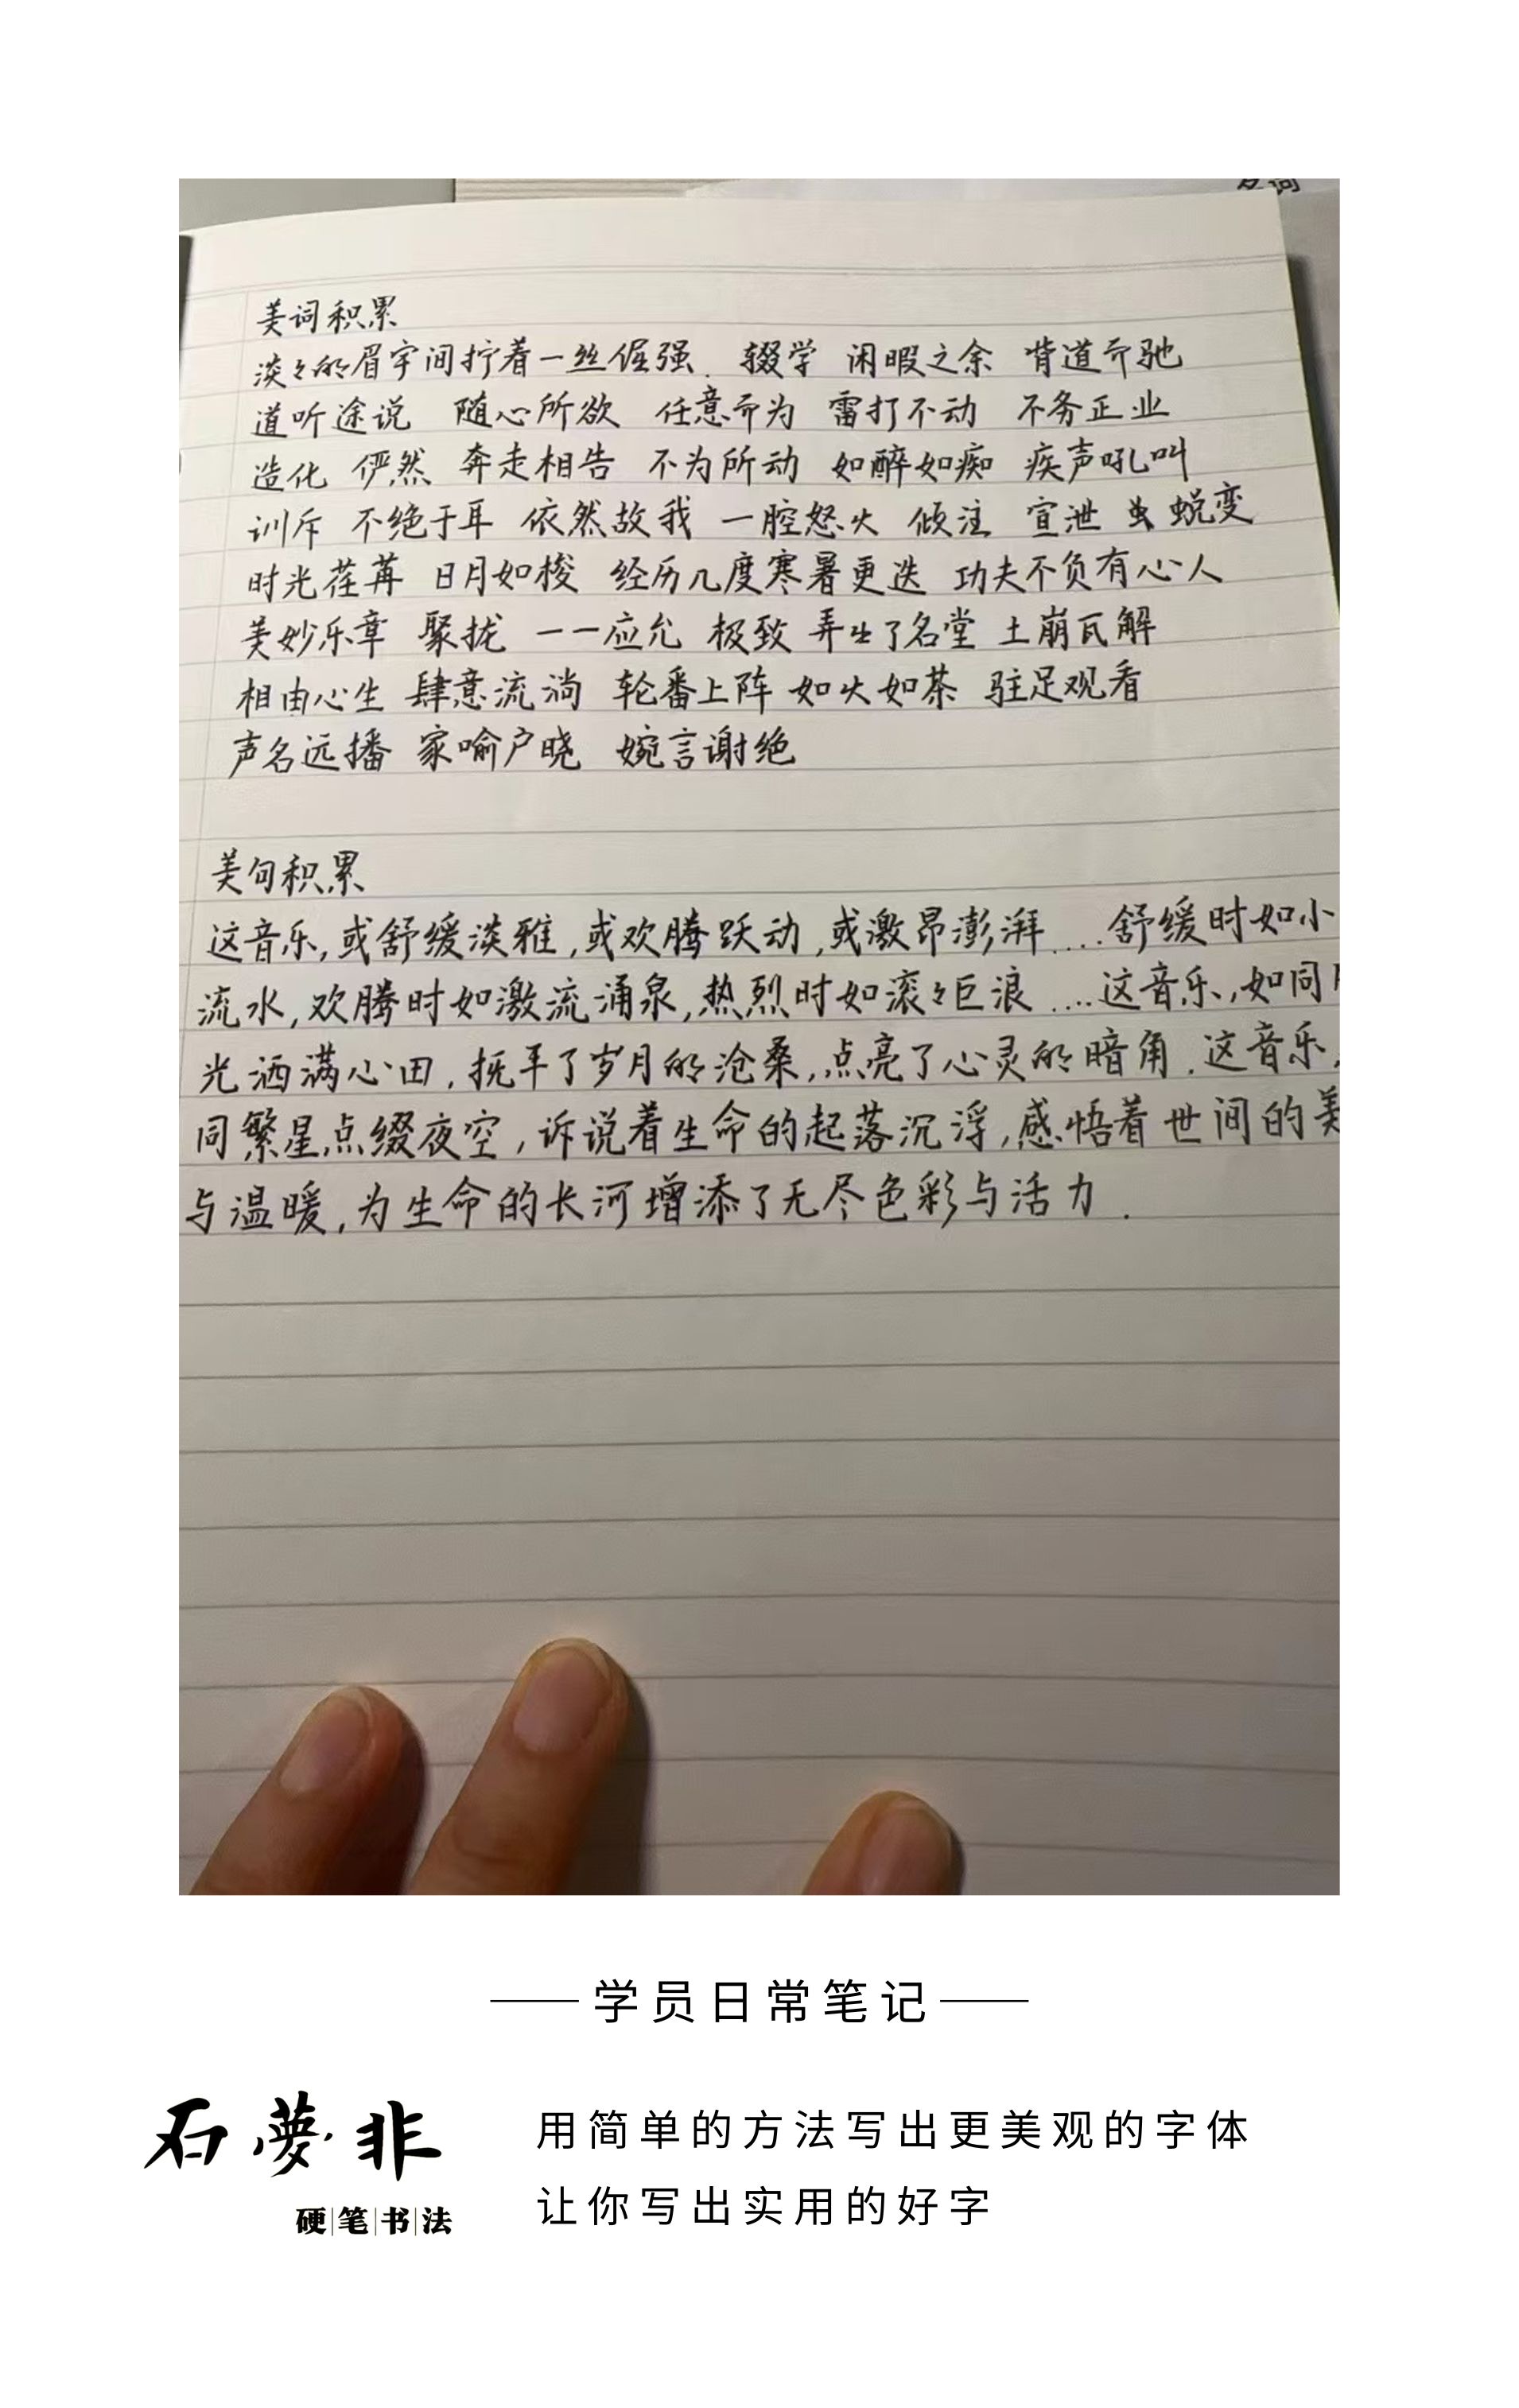 美词积累
淡々的眉宇间拧着一丝倔强. 辍学 闲暇之余 背道而驰
道听途说 随心所欲 任意而为 雷打不动 不务正业
造化 俨然 奔走相告 不为所动 如醉如痴 疾声吼叫
训斥 不绝于耳 依然故我 一腔怒火 倾注 宣泄 虫 蜕变
时光荏苒 日月如梭 经历几度寒暑更迭 功夫不负有心人
美妙乐章 聚拢 一一应允 极致 弄出了名堂 土崩瓦解
相由心生 肆意流淌 轮番上阵 如火如荼 驻足观看
声名远播 家喻户晓 婉言谢绝
美句积累
这音乐,或舒缓淡雅,或欢腾跃动,或激昂澎湃....舒缓时如小
流水,欢腾时如激流涌泉,热烈时如滚々巨浪....这音乐,如同
光洒满心田,抚平了岁月的沧桑,点亮了心灵的暗角.这音乐,
同繁星点缀夜空,诉说着生命的起落沉浮,感悟着世间的美
与温暖,为生命的长河增添了无尽色彩与活力.
学员日常笔记
石夢非
硬笔书法
用简单的方法写出更美观的字体
让你写出实用的好字